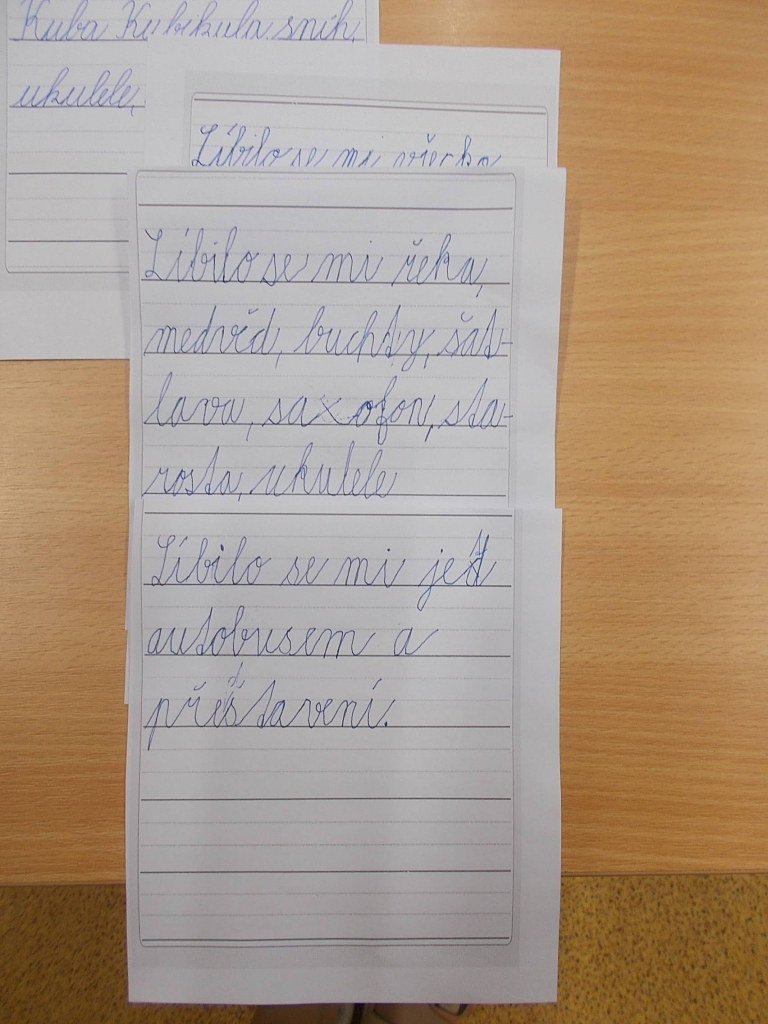 Kuba Kubikula sníh,
ukulele,
Líbilo se mi všecko
Líbilo se mi řeka,
medvěd, buchty, šat-
lava, saxofon, sta-
rosta, ukulele
Líbilo se mi jet
autobusem a
představení.